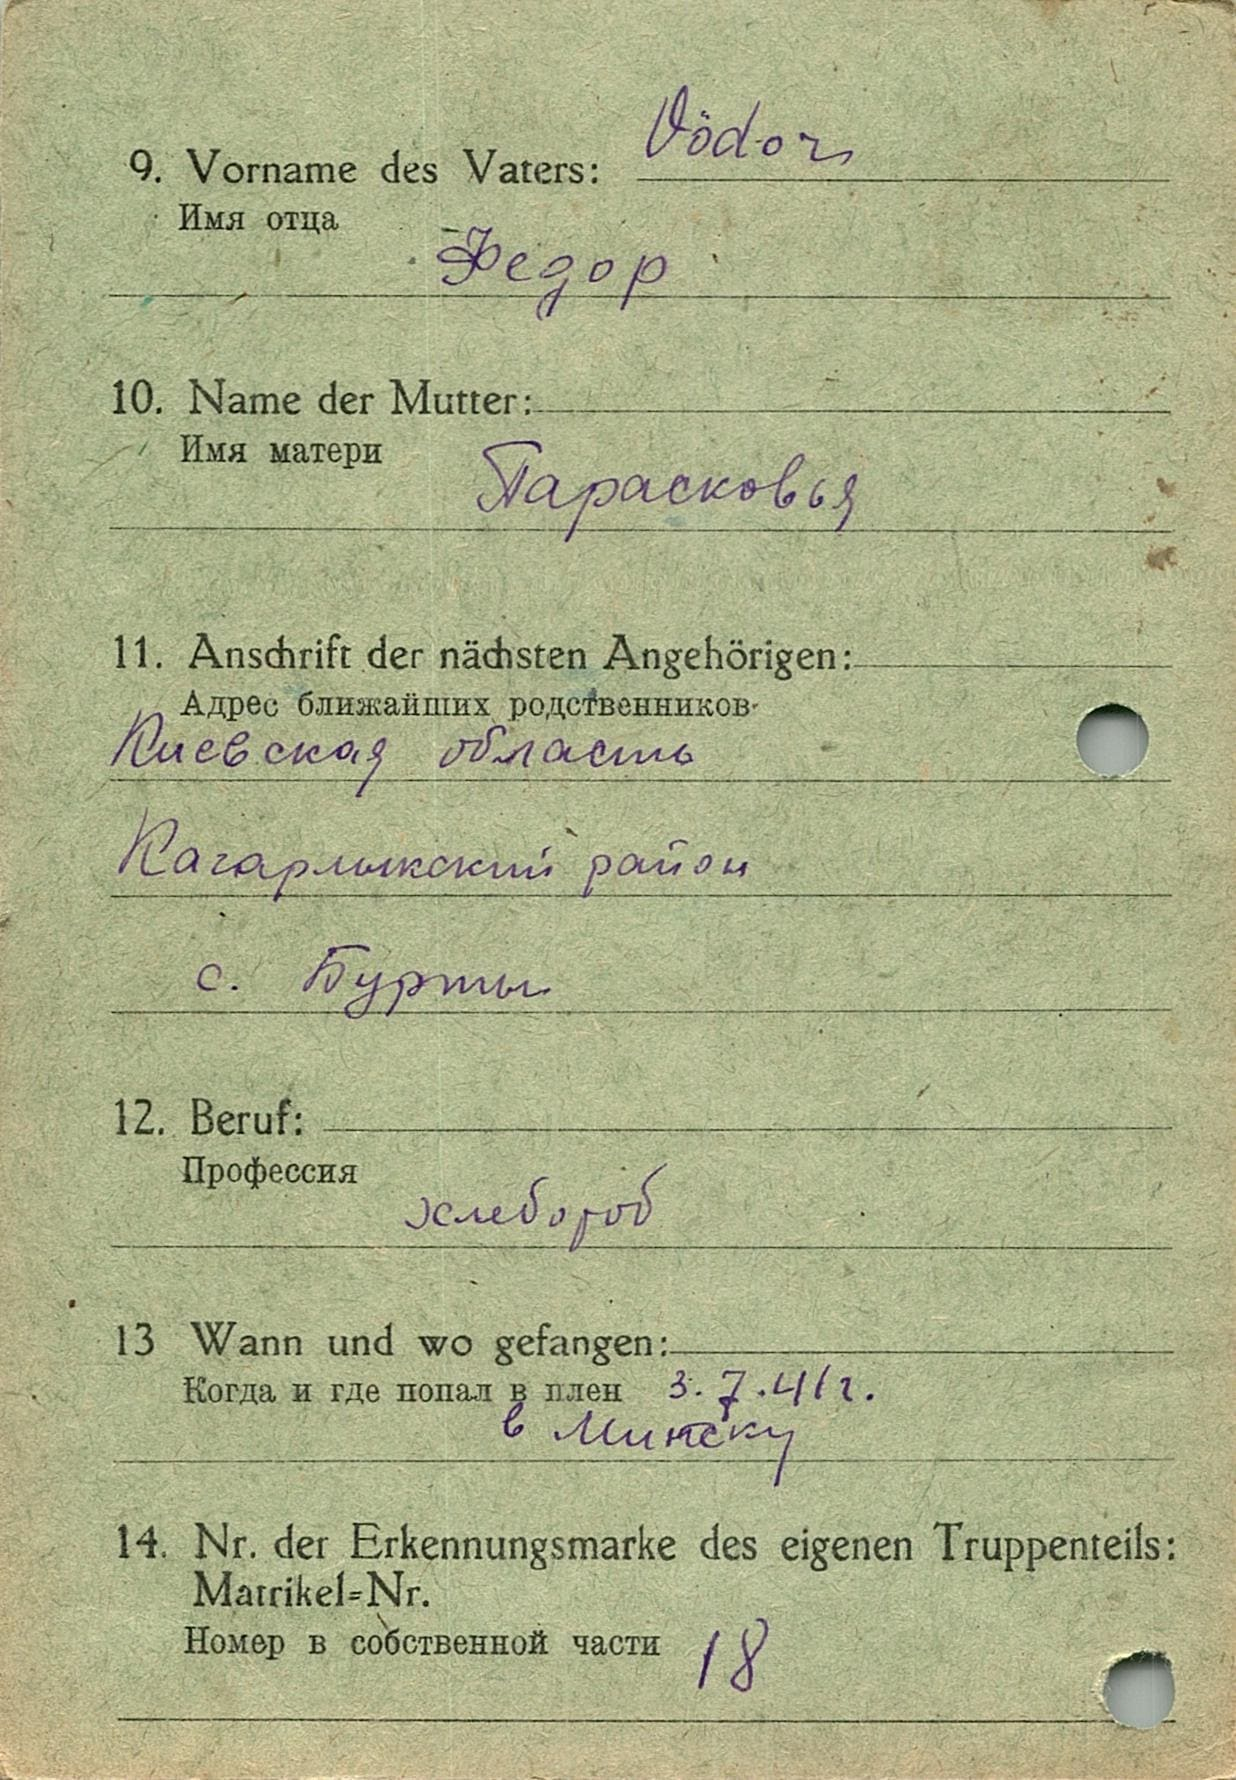 9. Vorname des Vaters: Vödor
Имя отца
Федор
10. Name der Mutter:
Имя матери
Парасковья
11. Anschrift der nächsten Angehörigen:
Адрес ближайших родственников
Киевская область
Кагарлыкский район
с. Бурты
12. Beruf:
Профессия
хлебороб
13 Wann und wo gefangen:
Когда и где попал в плен 3.7.41г.
в Минску
14. Nr. der Erkennungsmarke des eigenen Truppenteils:
Matrikel=Nr.
Номер в собственной части 18